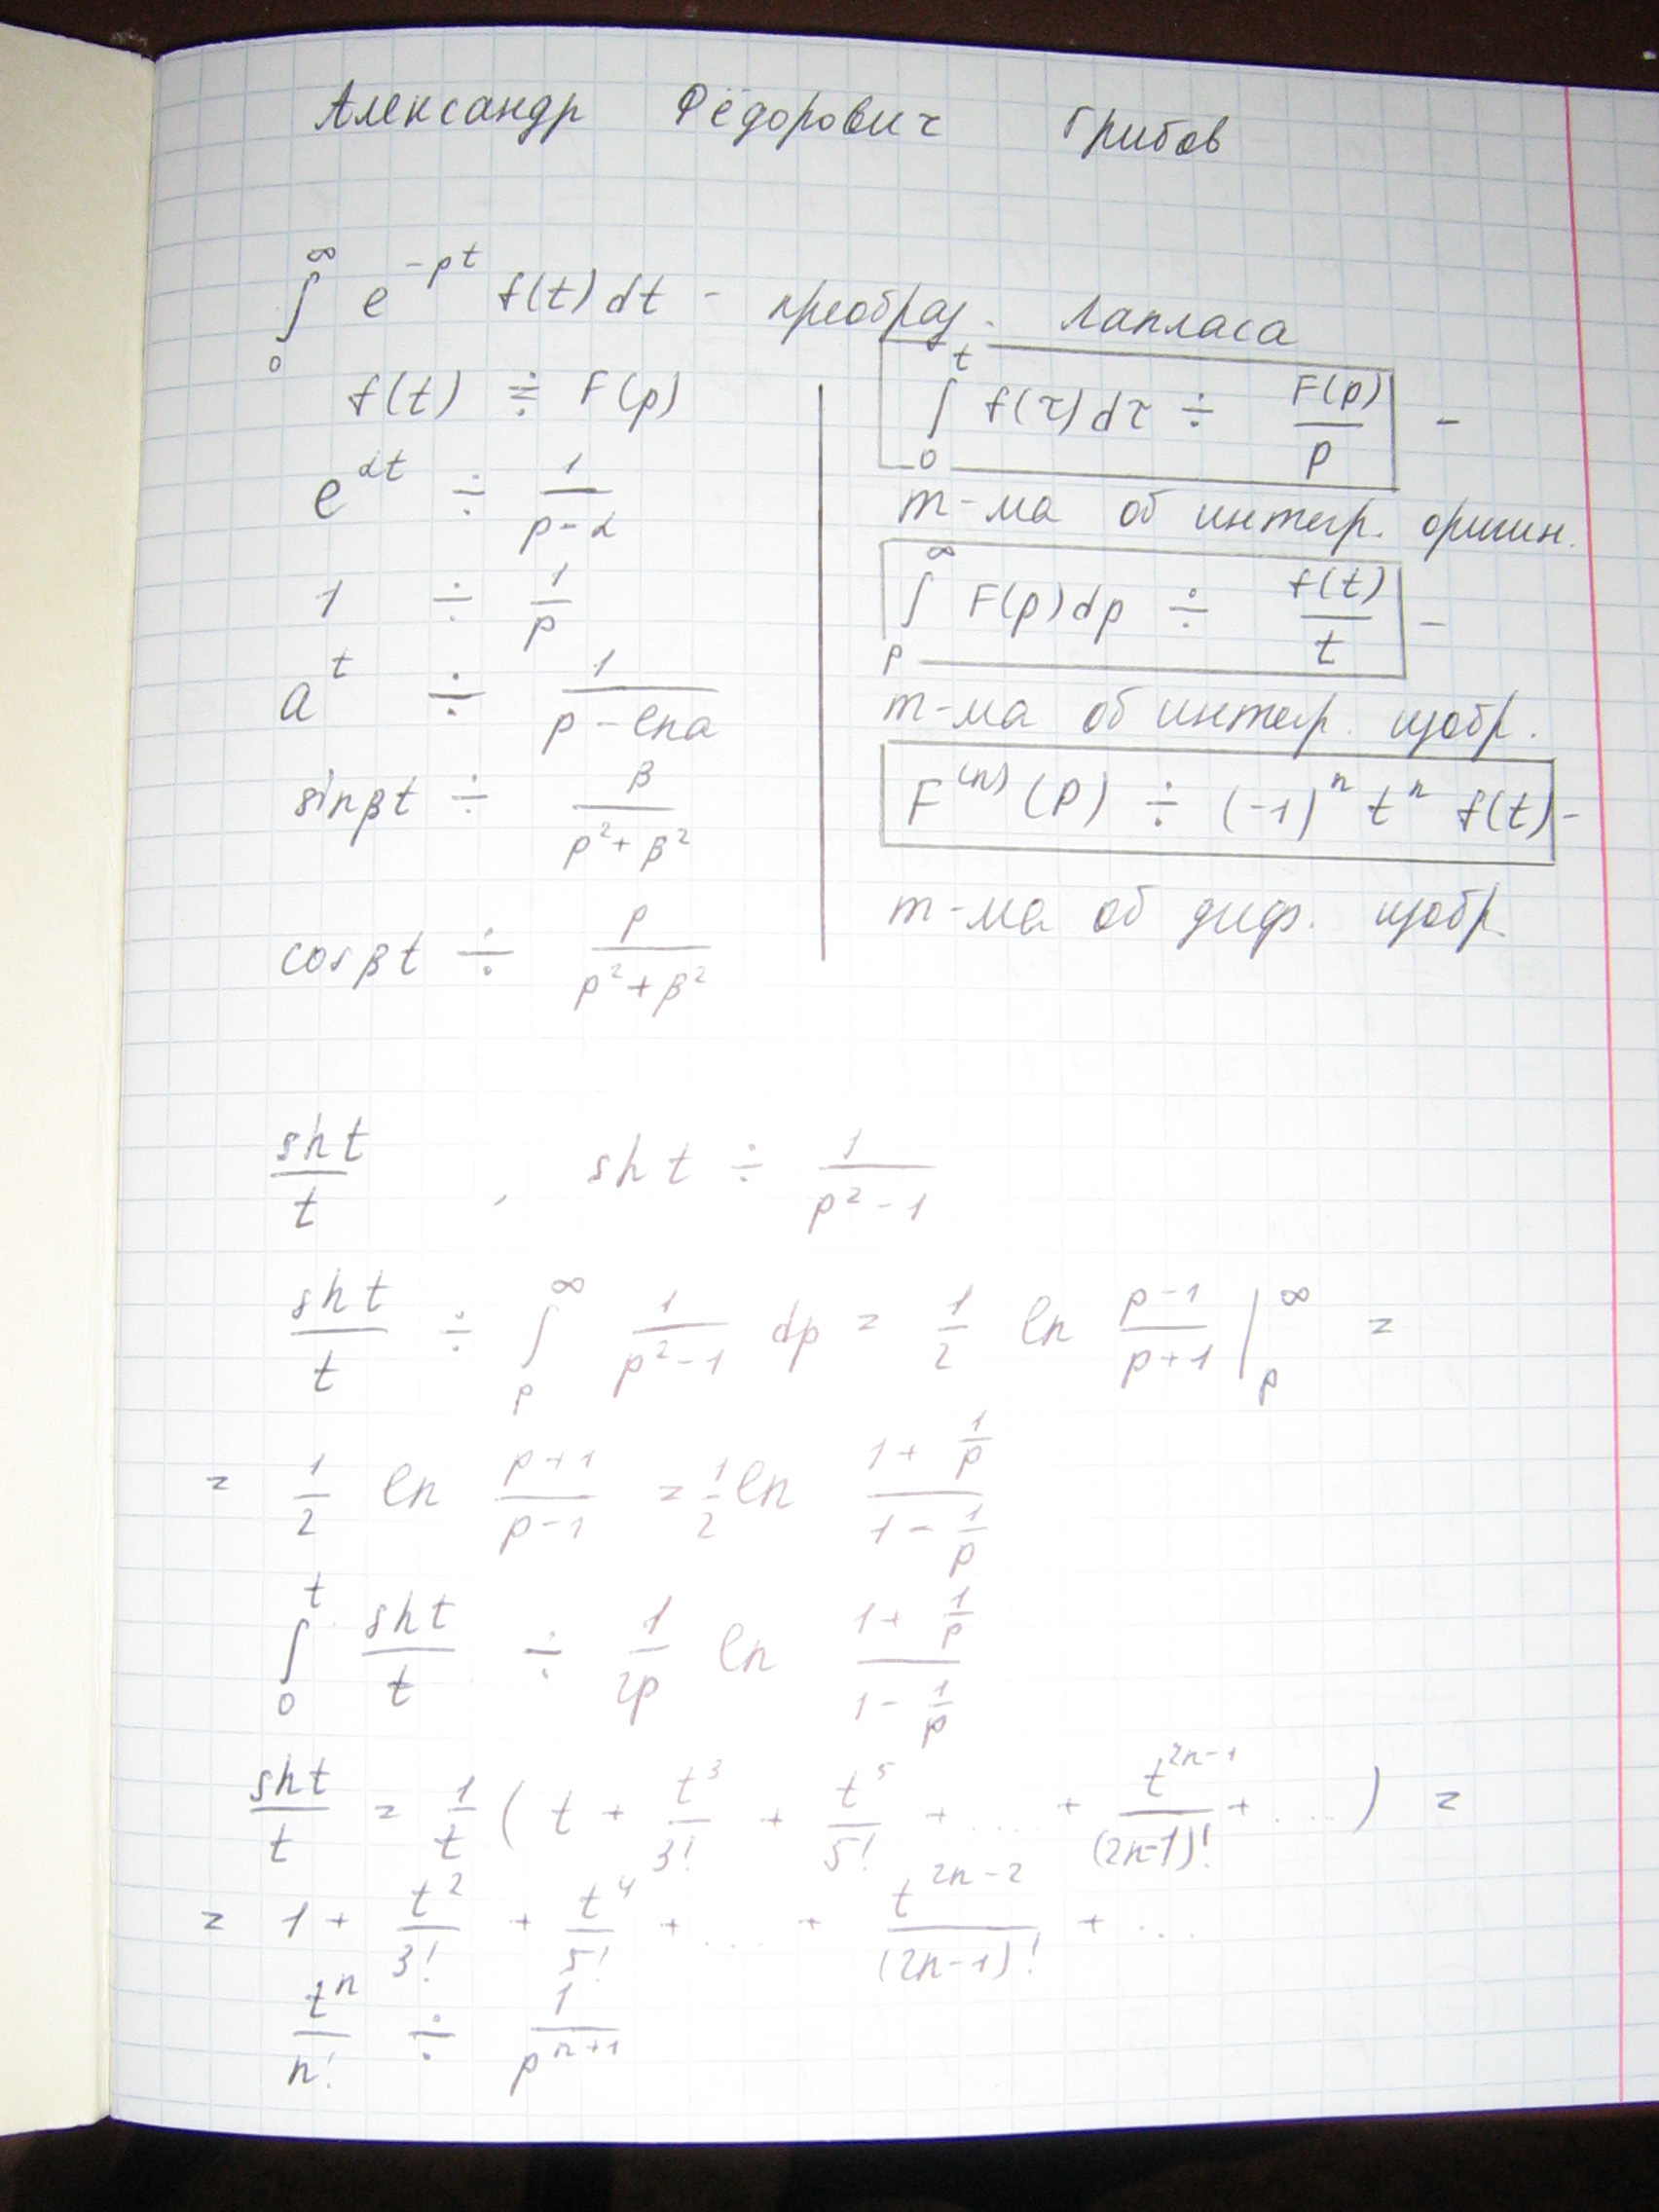 Александр Фёдорович Грибов
∫₀^∞ e^{-pt} f(t)dt - преобраз. Лапласа
f(t) ≑ F(p)
e^{αt} ÷ 1/(p-α)
1 ÷ 1/p
a^t ÷ 1/(p-lna)
sinβt ÷ β/(p²+β²)
cosβt ÷ p/(p²+β²)
∫₀^t f(τ)dτ ÷ F(p)/p -
т-ма об интегр. оригин.
∫_p^∞ F(p)dp ÷ f(t)/t -
т-ма об интегр. изобр.
F^{(n)}(P) ÷ (-1)^n t^n f(t) -
т-ма об диф. изобр.
sht/t , sht ÷ 1/(p²-1)
sht/t ÷ ∫_p^∞ 1/(p²-1) dp = 1/2 ln (p-1)/(p+1) |_p^∞ =
= 1/2 ln (p+1)/(p-1) = 1/2 ln (1+1/p)/(1-1/p)
∫₀^t sht/t ÷ 1/(2p) ln (1+1/p)/(1-1/p)
sht/t = 1/t ( t + t³/3! + t⁵/5! + .... + t^{2n-1}/(2n-1)! + .... ) =
= 1 + t²/3! + t⁴/5! + ... + t^{2n-2}/(2n-1)! + ...
t^n/n! ÷ 1/p^{n+1}